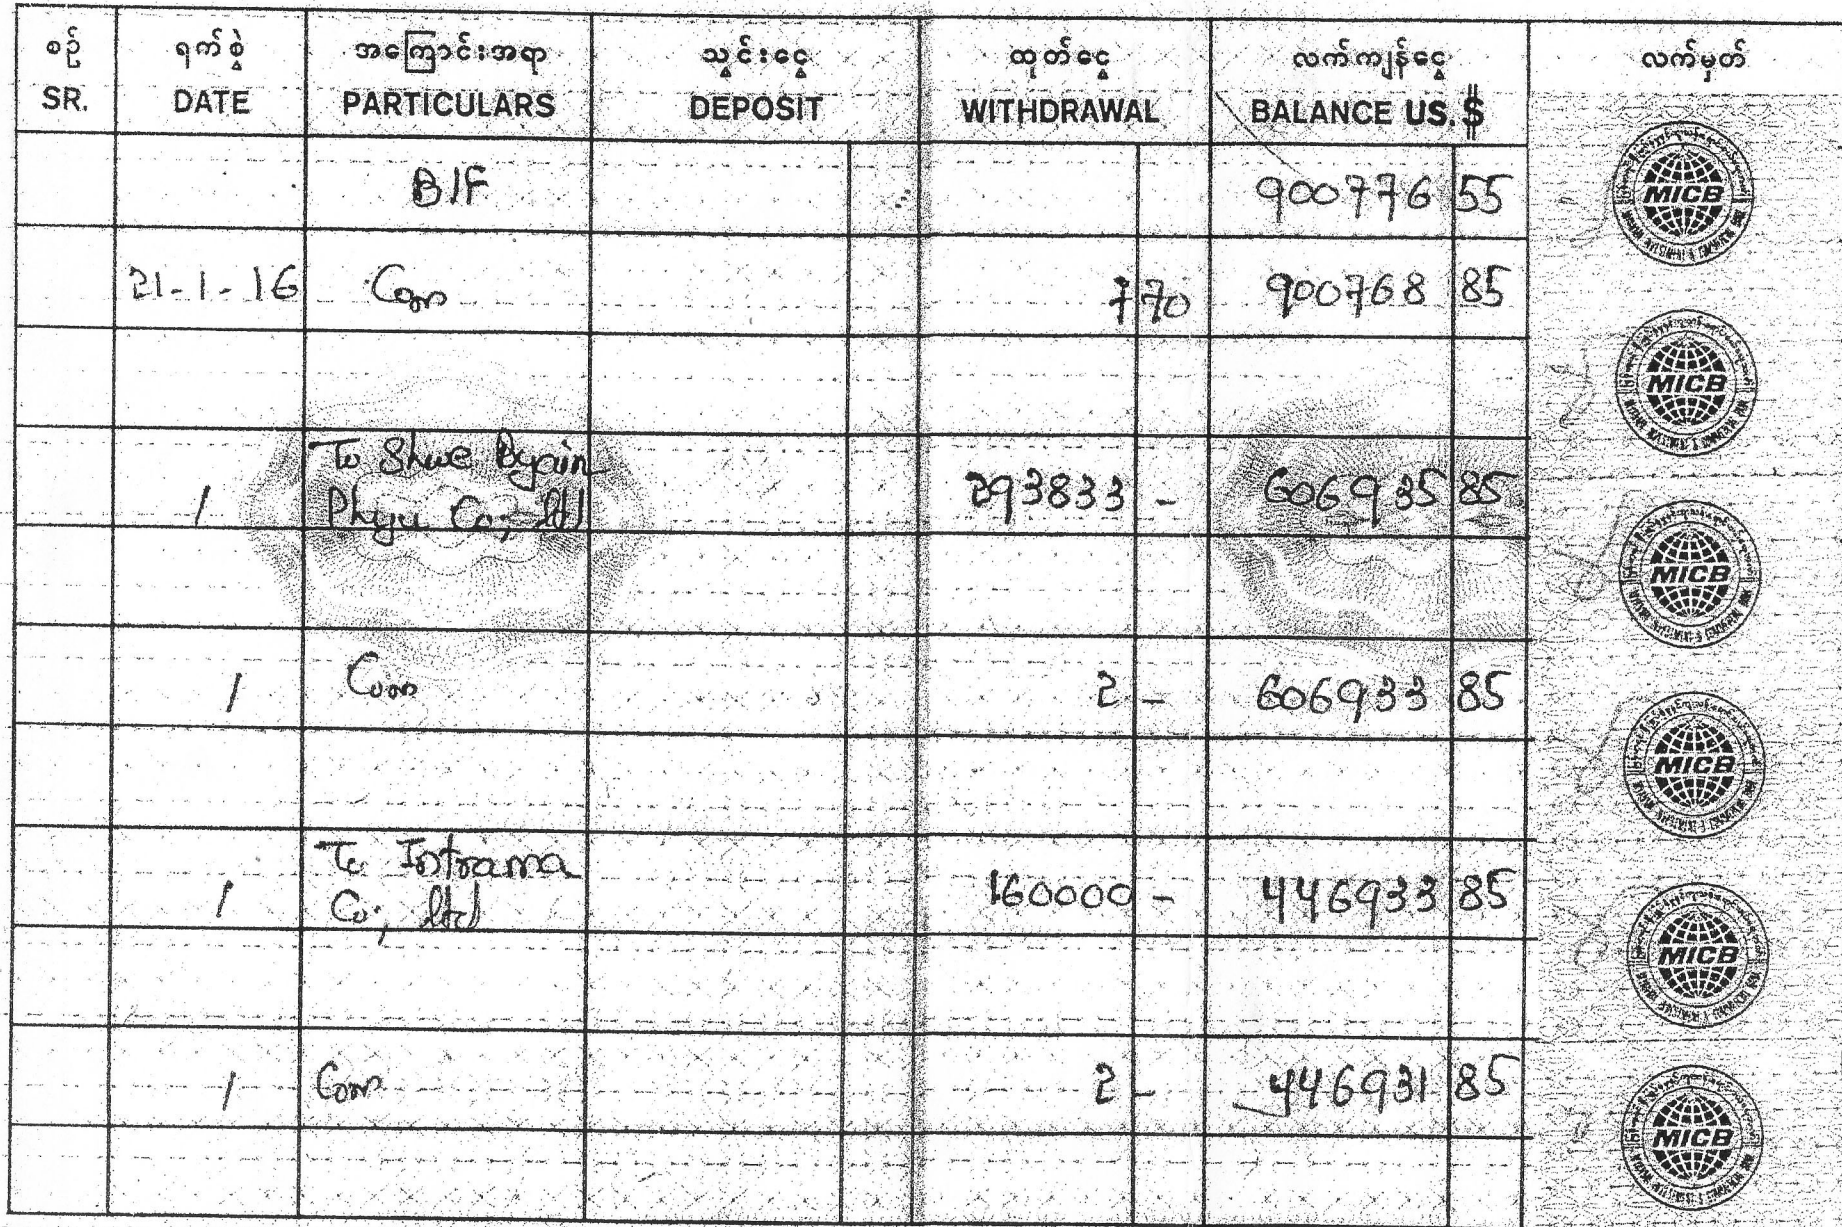 စဉ် ရက်စွဲ အကြောင်းအရာ သွင်းငွေ ထုတ်ငွေ လက်ကျန်ငွေ လက်မှတ်
SR. DATE PARTICULARS DEPOSIT WITHDRAWAL BALANCE US.$
B/F 900776 55
MICB
21-1-16 Com 7 70 900768 85
MICB
To Shwe Byain
/ Phyu Co; ltd 293833 - 606935 85
MICB
/ Com 2 - 606933 85
MICB
To Intrama
/ Co; ltd 160000 - 446933 85
MICB
/ Com 2 - 446931 85
MICB